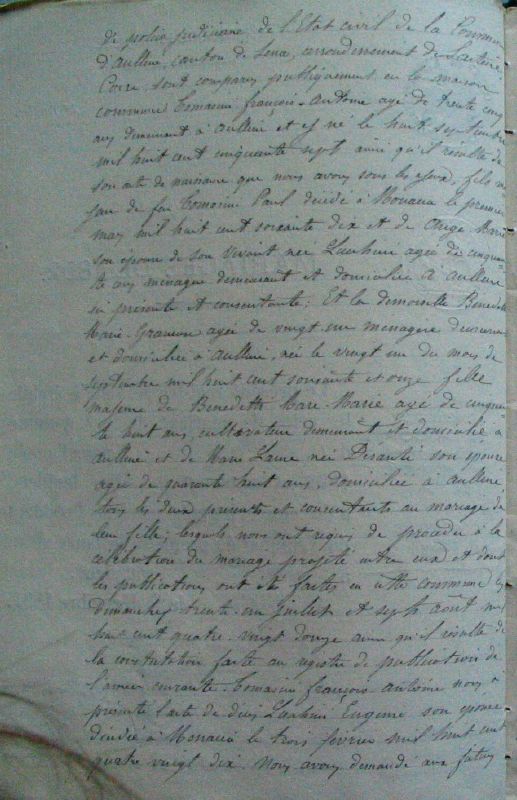 de police judiciaire de l'Etat civil de la Commune
d'Aullène, canton de Serra, arrondissement de Sartène,
Corse, sont comparus publiquement en la maison
commune Tomasini françois-Antoine agé de trente cinq
ans demeurant à Aullène et y né le huit septembre
mil huit cent cinquante sept ainsi qu'il résulte de
son acte de naissance que nous avons sous les yeux, fils
de feu Tomasini Paul décédé à Monacia le premier
may mil huit cent soixante dix et de Ange Marie
son épouse de son vivant née Lanfrini agée de cinquan-
te ans ménagère demeurant et domiciliée à Aullène
ici présente et consentante; Et la demoiselle Benedetti
Marie Gracieuse agée de vingt un ménagère demeurant
et domiciliée à Aullène, née le vingt un du mois de
septembre mil huit cent soixante et onze fille
majeure de Benedetti Marc-Marie agé de cinquan
te huit ans, cultivateur demeurant et domicilié à
Aullène et de Marie Laure née Desanti son épouse
agée de quarante huit ans, domiciliée à Aullène
tous les deux présents et consentants au mariage de
leur fille; lesquels nous ont requis de procéder à la
célébration du mariage projeté entre eux et dont
les publications ont été faites en cette commune les
dimanches trente-un Juillet et sept Août mil
huit cent quatre-vingt douze ainsi qu'il résulte de
la constatation faite au registre de publications de
l'année courante. Tomasini françois Antoine nous a
présenté l'acte de décès Eugénie son épouse
décédée à Monacia le trois février mil huit cent
quatre vingt dix. Nous avons demandé aux futurs